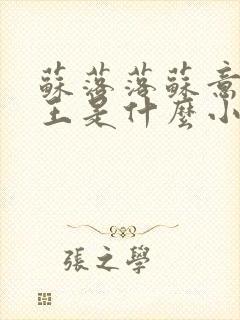 蘇落落蘇意
王是什麼小
張之學